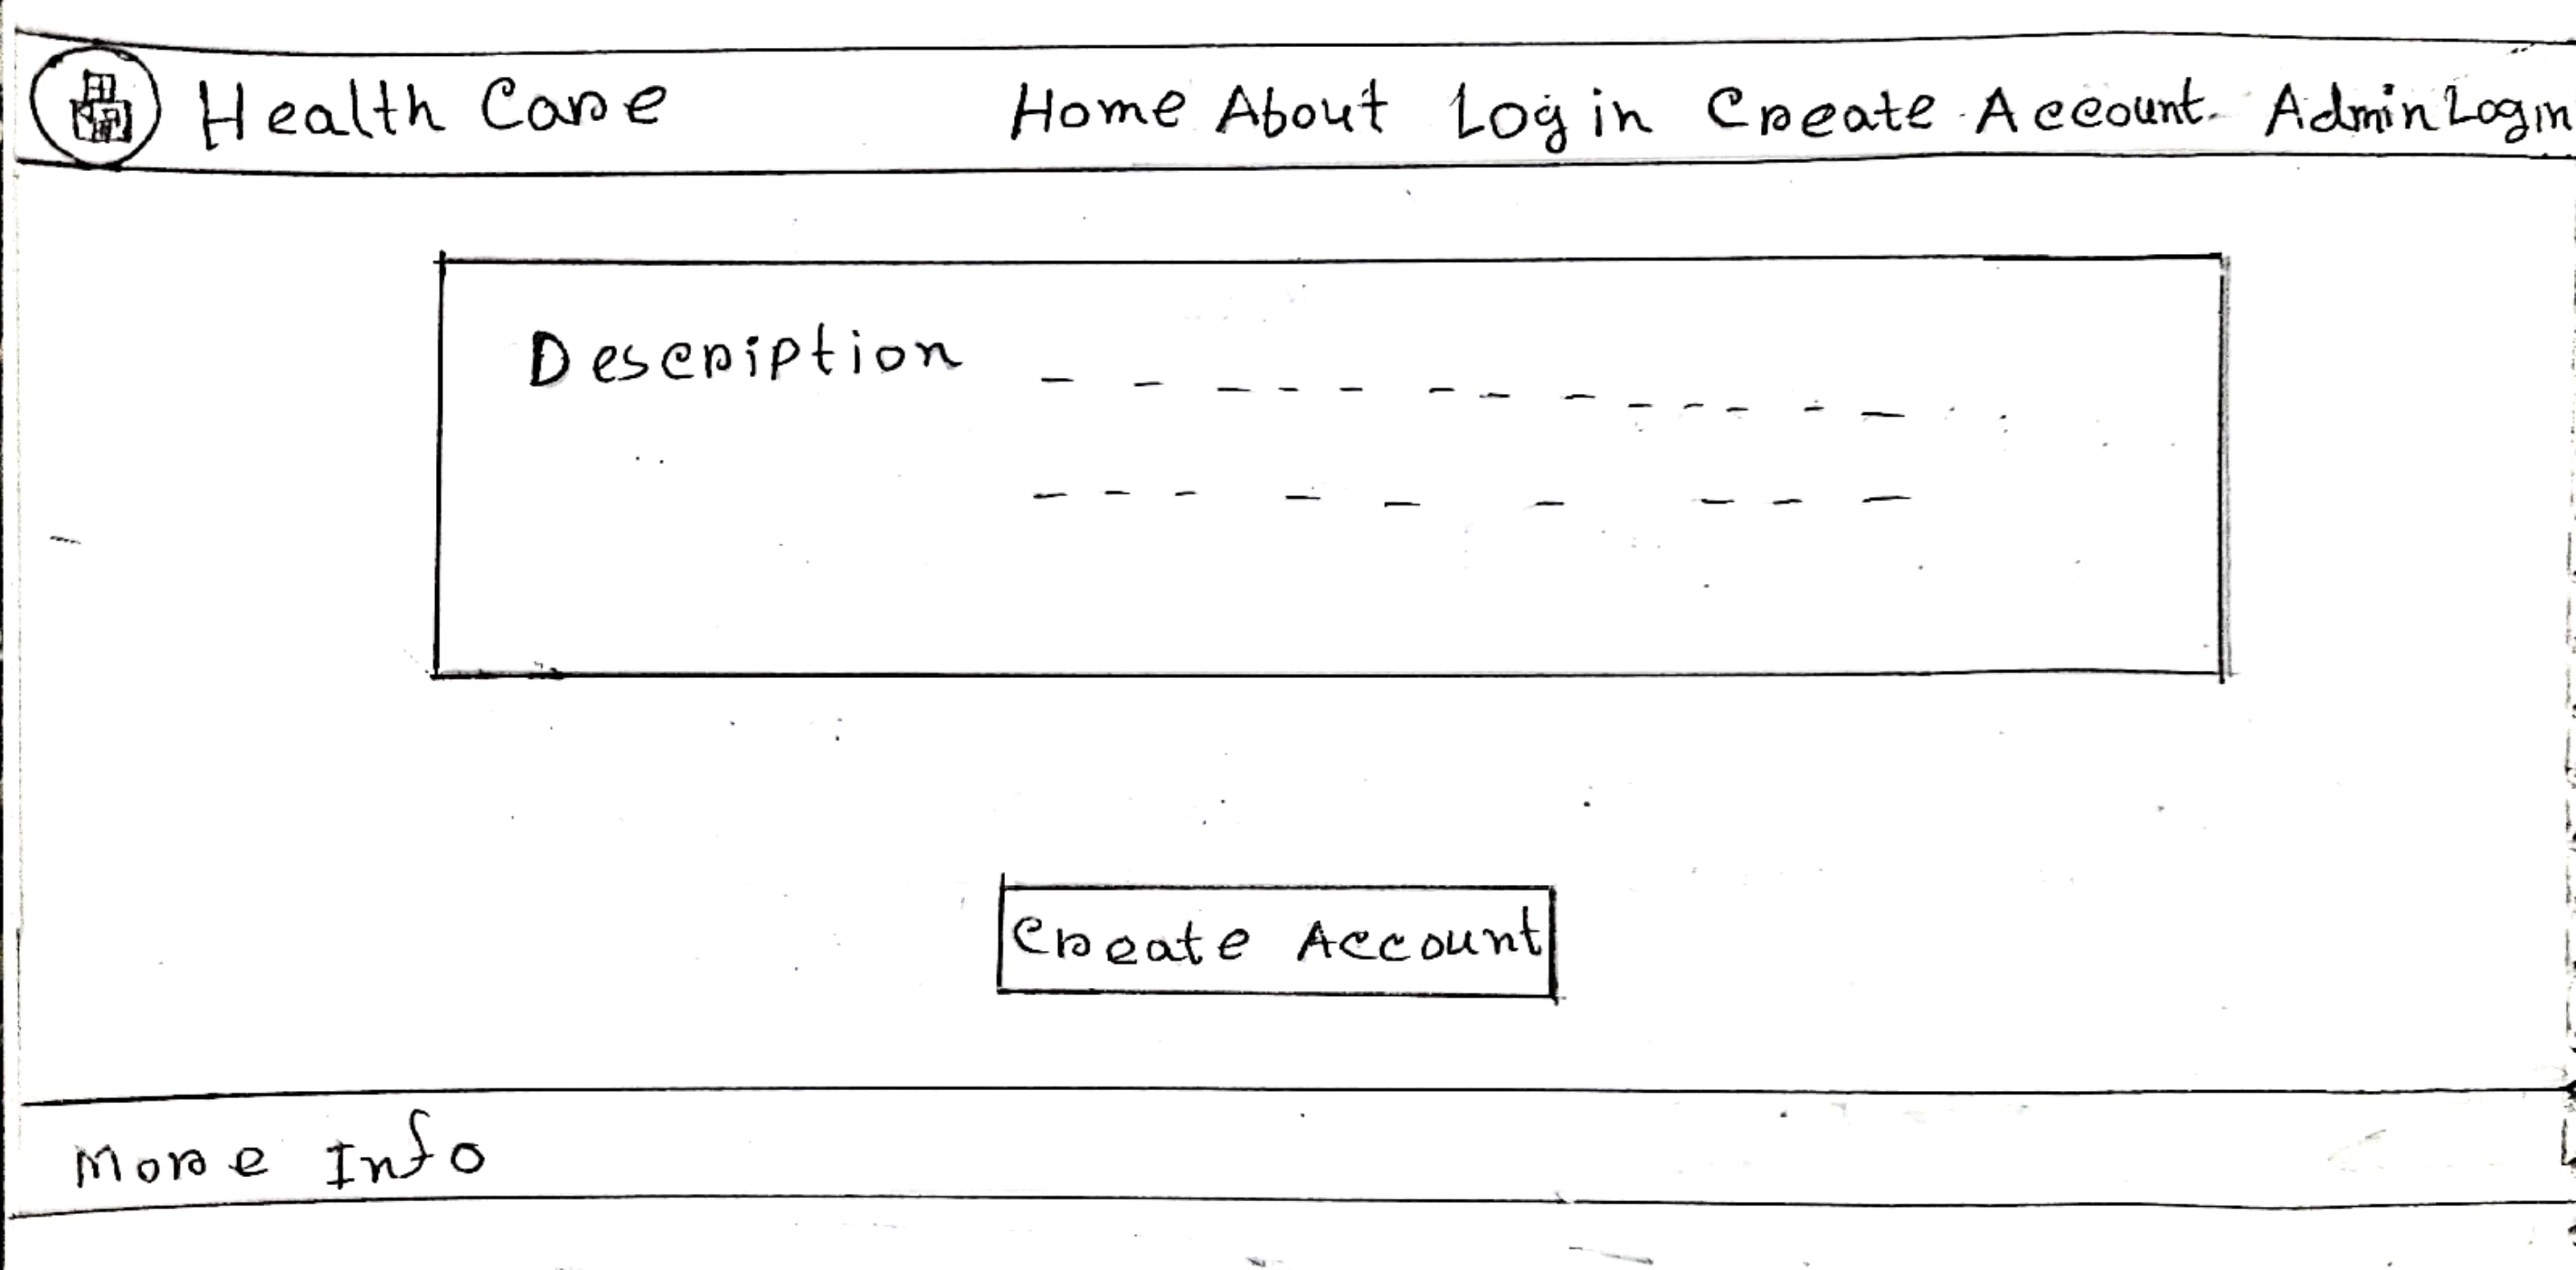 Health Care
Home About Log in Create Account. Admin Login
Description
Create Account
More Info